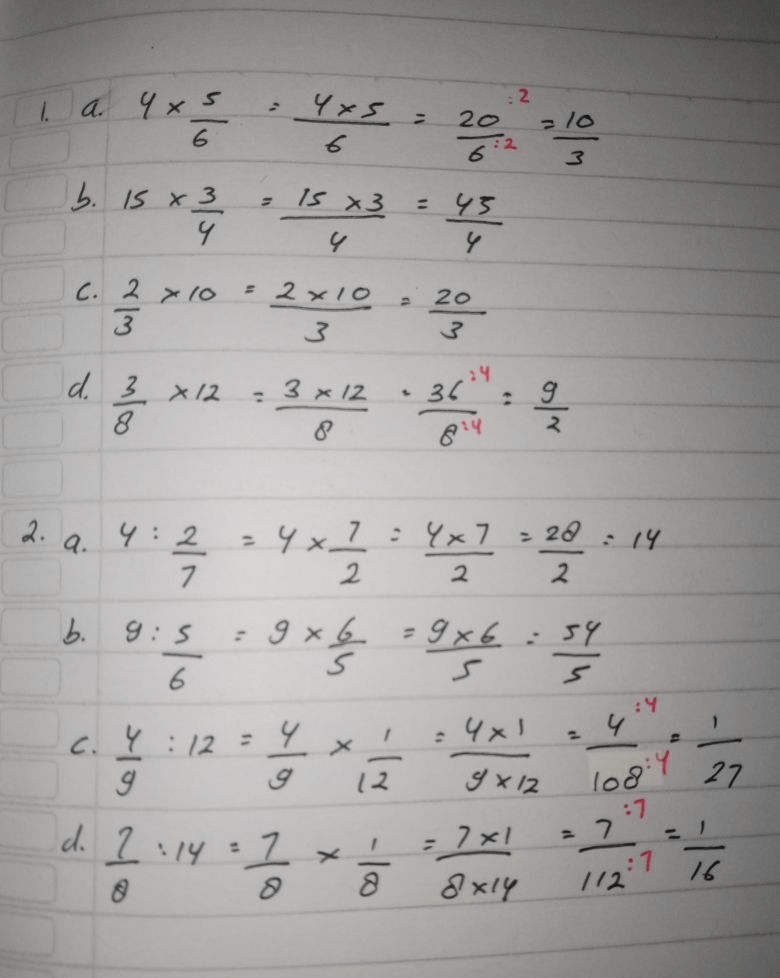 1. a. 4 × 5/6 = 4×5/6 = 20 :2/6 :2 = 10/3
b. 15 × 3/4 = 15 ×3/4 = 45/4
c. 2/3 ×10 = 2×10/3 = 20/3
d. 3/8 ×12 = 3×12/8 = 36 :4/8 :4 = 9/2
2. a. 4 : 2/7 = 4 × 7/2 = 4×7/2 = 28/2 = 14
b. 9 : 5/6 = 9 × 6/5 = 9×6/5 = 54/5
c. 4/9 : 12 = 4/9 × 1/12 = 4×1/9×12 = 4 :4/108 :4 = 1/27
d. 7/8 : 14 = 7/8 × 1/8 = 7×1/8×14 = 7 :7/112 :7 = 1/16